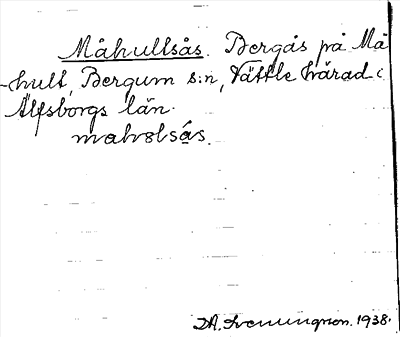 Måhullsås. Bergås på Må
-hult, Bergum s:n, Vättle härad i
Älfsborgs län.
maholsås.
D.A. Svenungson. 1938.